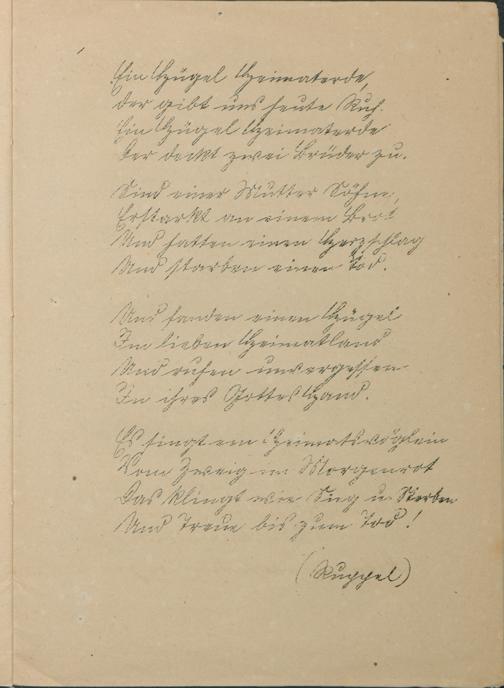 Ein Hügel Heimaterde,
der gibt uns heute Ruh.
Ein Hügel Heimaterde
der deckt zwei Brüder zu.
Sind einer Mutter Söhne,
Erstarkt an einem Brot
Und hatten einen Herzschlag
Und starben einen Tod.
Und fanden einen Hügel
Im lieben Heimatland
Und ruhen unvergessen
In ihres Gottes Hand.
Es singt ein Heimatvöglein
Vom Zweig im Morgenrot
Das klingt wie Sieg u. Sterben
Und Treue bis zum Tod!
(Ruppel)